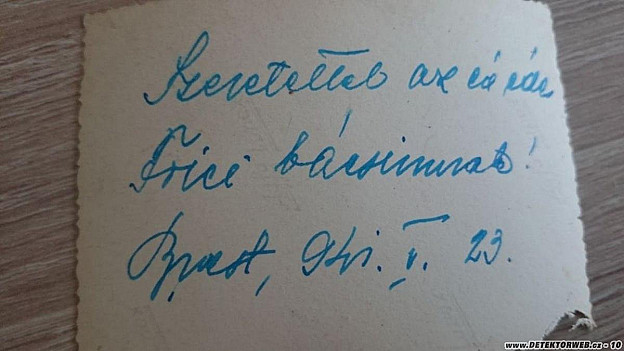 Szeretettel az én
Frici bácsimnak!
Bpest, 941. V. 23.
www.DETEKTORWEB.cz - 10